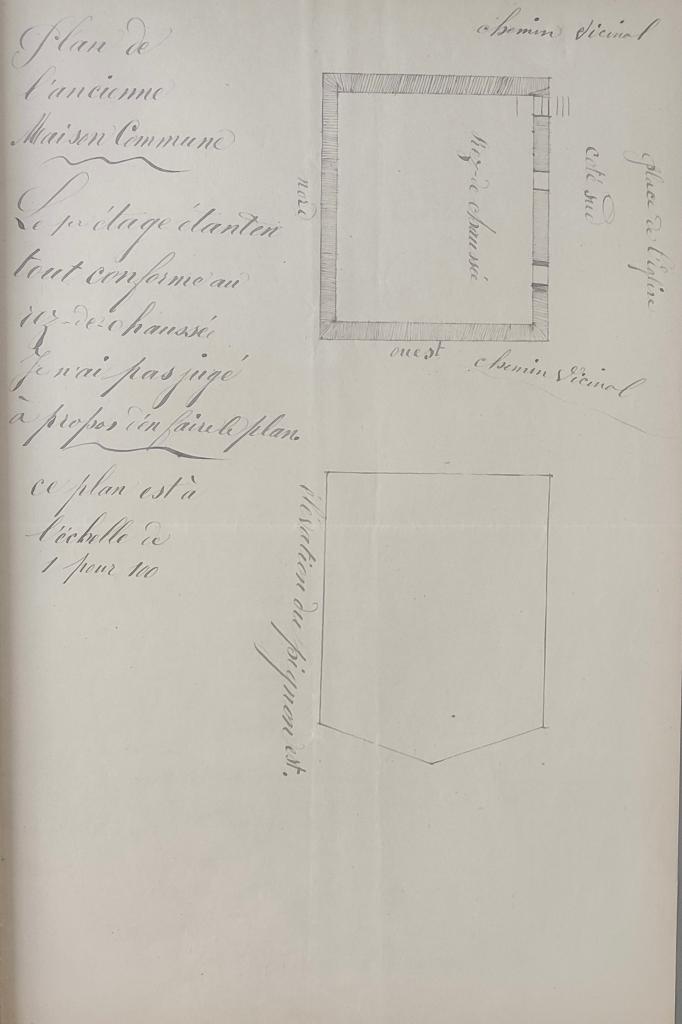 Plan de
l'ancienne
Maison Commune
Le 1er étage étant en
tout conforme au
rez-de-chaussée
Je n'ai pas jugé
à propos d'en faire le plan.
ce plan est à
l'échelle de
1 pour 100
chemin vicinal
nord
Rez-de chaussée
coté sud
place de l'Eglise
ouest
chemin vicinal
élévation du pignon est.